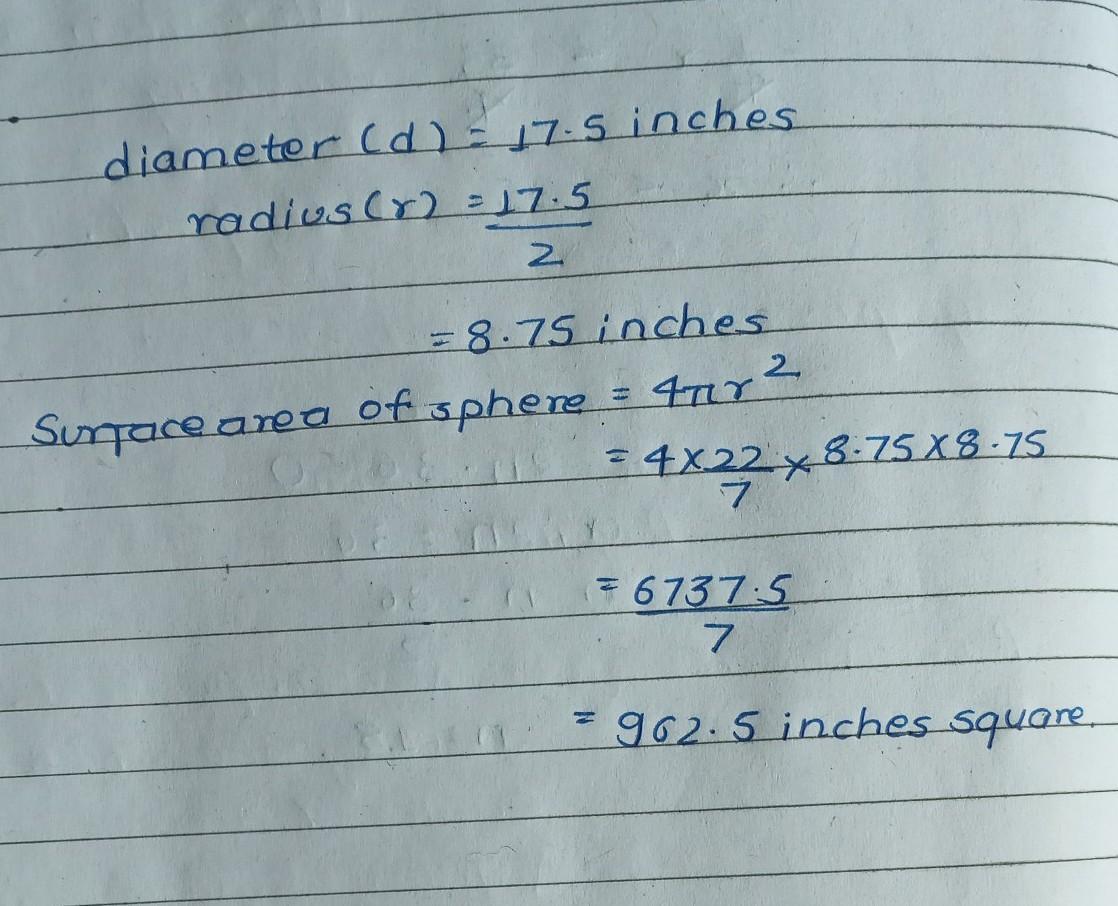 diameter (d) = 17.5 inches
radius (r) = 17.5
2
= 8.75 inches
Surface area of sphere = 4πr²
= 4 × 22/7 × 8.75 × 8.75
= 6737.5
7
= 962.5 inches square.